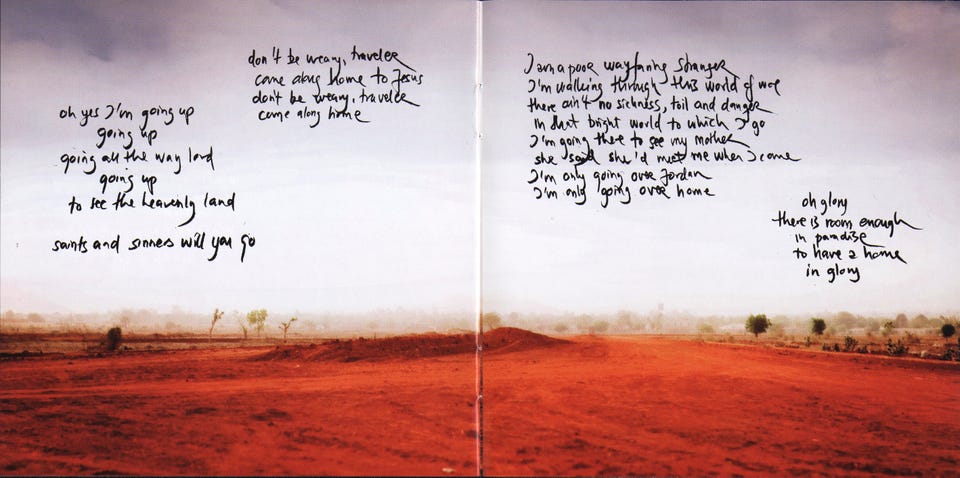 oh yes I'm going up
going up
going all the way lord
going up
to see the heavenly land
saints and sinners will you go
don't be weary, traveler
come along home to Jesus
don't be weary, traveler
come along home
I am a poor wayfaring stranger
I'm walking through this world of woe
there ain't no sickness, toil and danger
in that bright world to which I go
I'm going there to see my mother
she said she'd meet me when I come
I'm only going over Jordan
I'm only going over home
oh glory
there is room enough
in paradise
to have a home
in glory